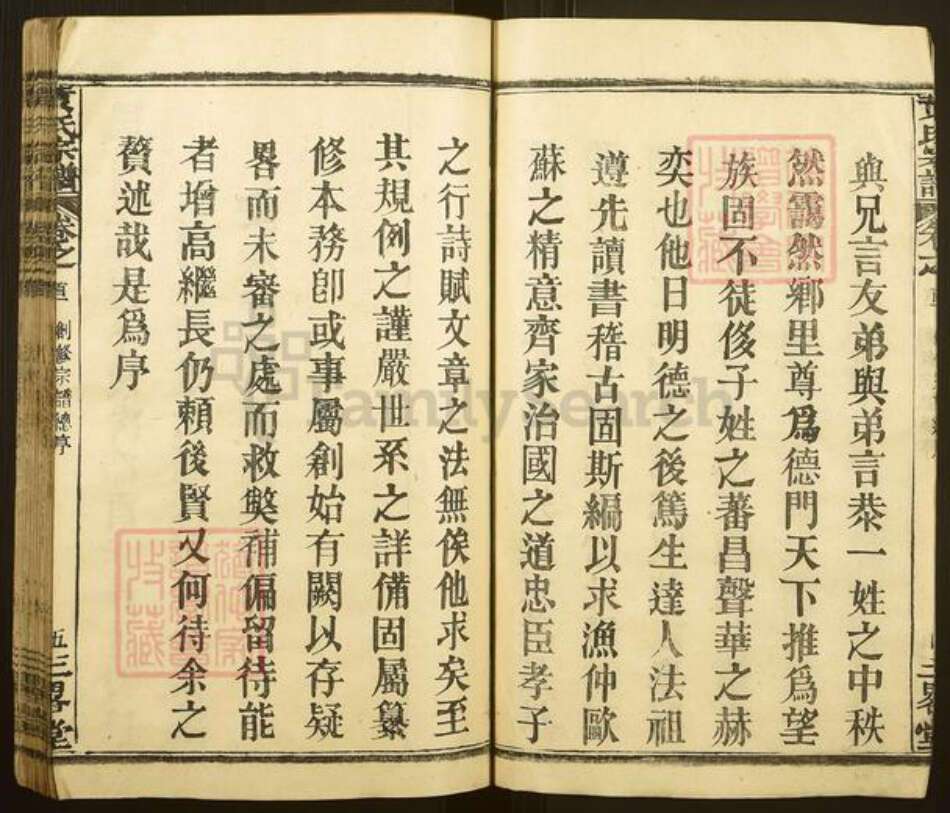 與兄言友弟與弟言恭一姓之中秩
然靄然鄉里尊爲德門天下推爲望
族固不徒侈子姓之蕃昌聲華之赫
奕也他日明德之後篤生達人法祖
遵先讀書稽古固斯編以求漁仲歐
蘇之精意齊家治國之道忠臣孝子
之行詩賦文章之法無俟他求矣至
其規例之謹嚴世系之詳備固屬纂
修本務卽或事屬創始有闕以存疑
畧而未審之處而救獘補偏留待能
者增高繼長仍賴後賢又何待余之
贅述哉是爲序
黃氏宗譜
卷之一
創修宗譜總序
五
三畧堂
FamilySearch